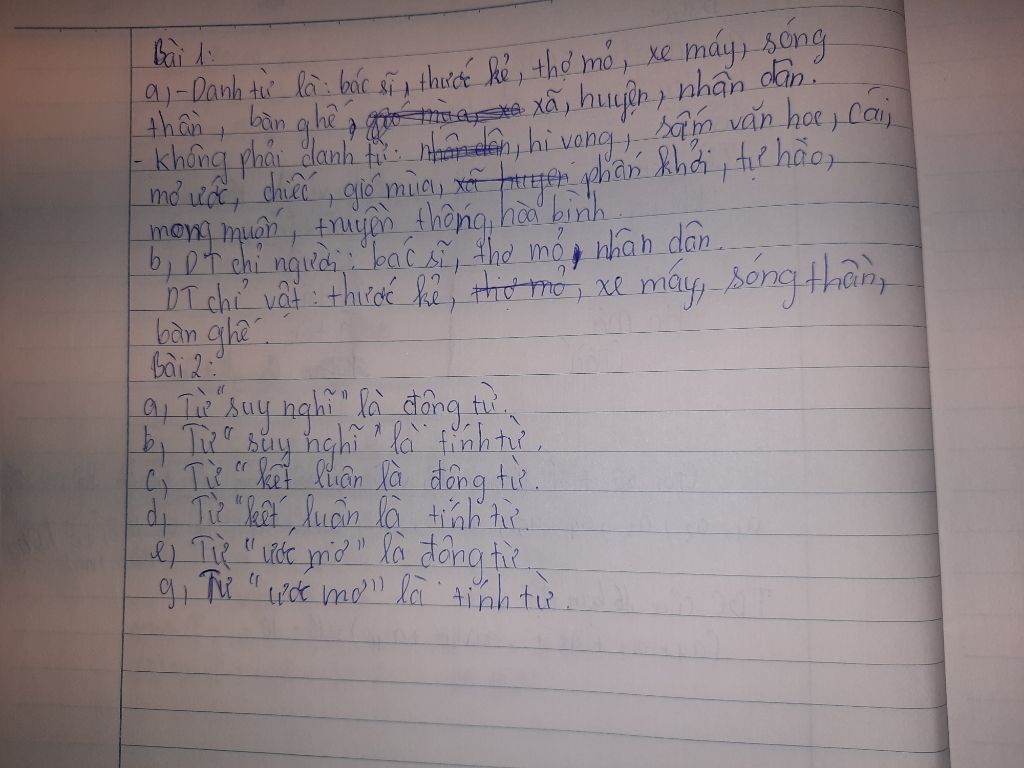 Bài 1:
a, - Danh từ là: bác sĩ, thước kẻ, thợ mỏ, xe máy, sóng
thần, bàn ghế, gió mùa, xe xã, huyện, nhân dân.
- không phải danh từ: nhân dân, hi vong, sấm văn học, cái,
mơ ước, chiếc, gió mùa, xã huyện phấn khởi, tự hào,
mong muốn, truyền thống, hòa bình.
b, DT chỉ người: bác sĩ, thơ mỏ, nhân dân.
DT chỉ vật: thước kẻ, thơ mỏ, xe máy, sóng thần,
bàn ghế.
Bài 2:
a, Từ "suy nghĩ" là đông từ.
b, Từ "suy nghĩ" là tính từ.
c, Từ "kết luân là đông từ.
d, Từ "kết luân là tính từ.
e, Từ "ước mơ" là đông từ.
g, Từ "ước mơ" là tính từ.